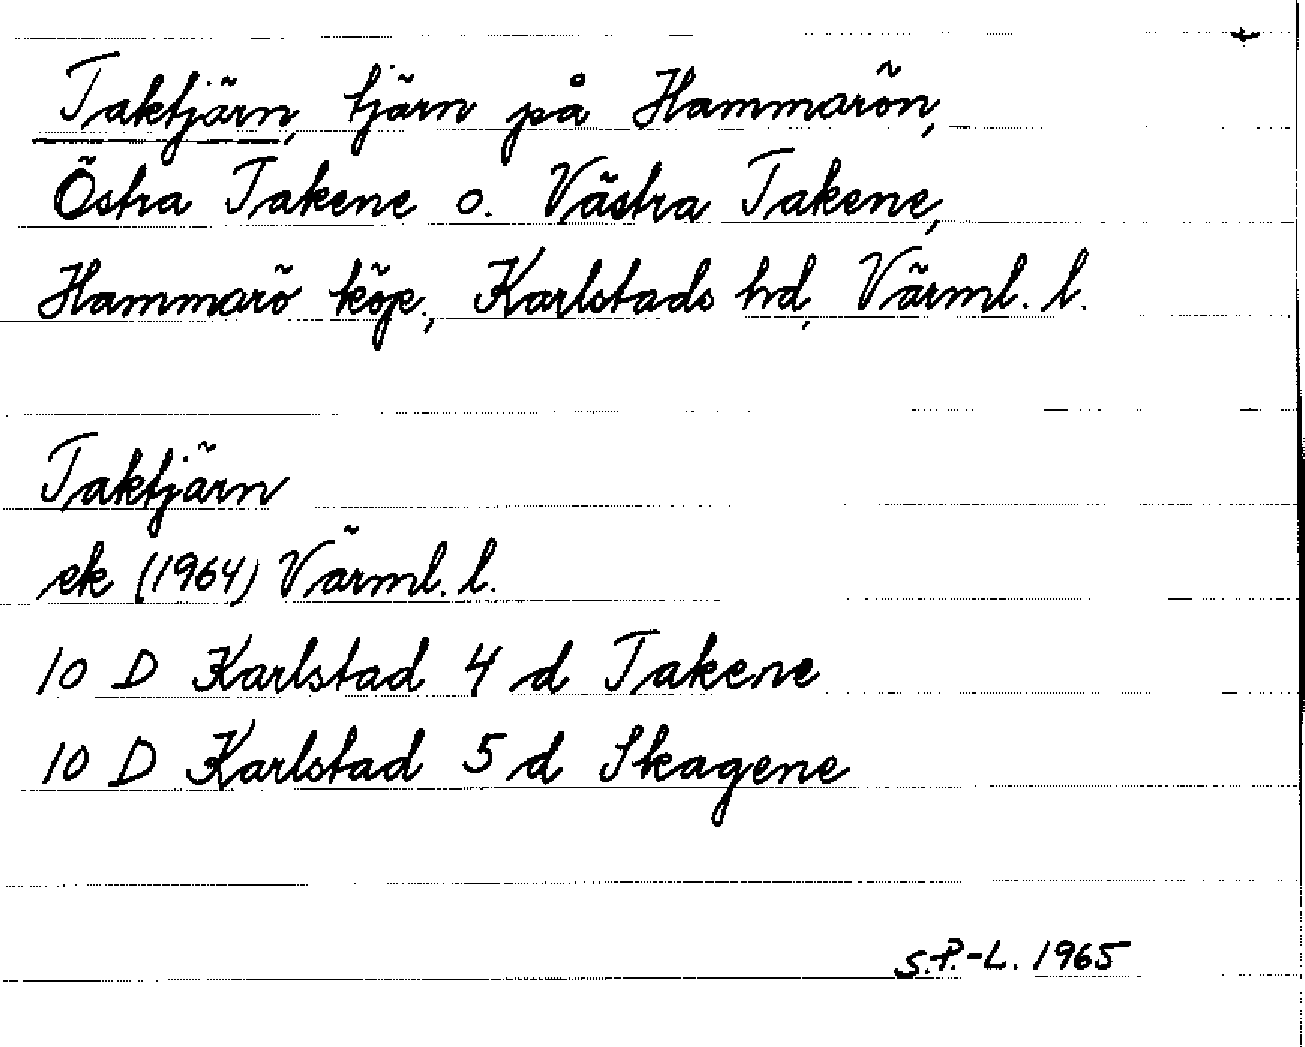 Taktjärn, tjärn på Hammarön,
Östra Takene o. Västra Takene,
Hammarö köp., Karlstads hd, Värml. l.
Taktjärn
ek (1964) Värml. l.
10 D Karlstad 4 d Takene
10 D Karlstad 5 d Skagene
S.P.-L. 1965